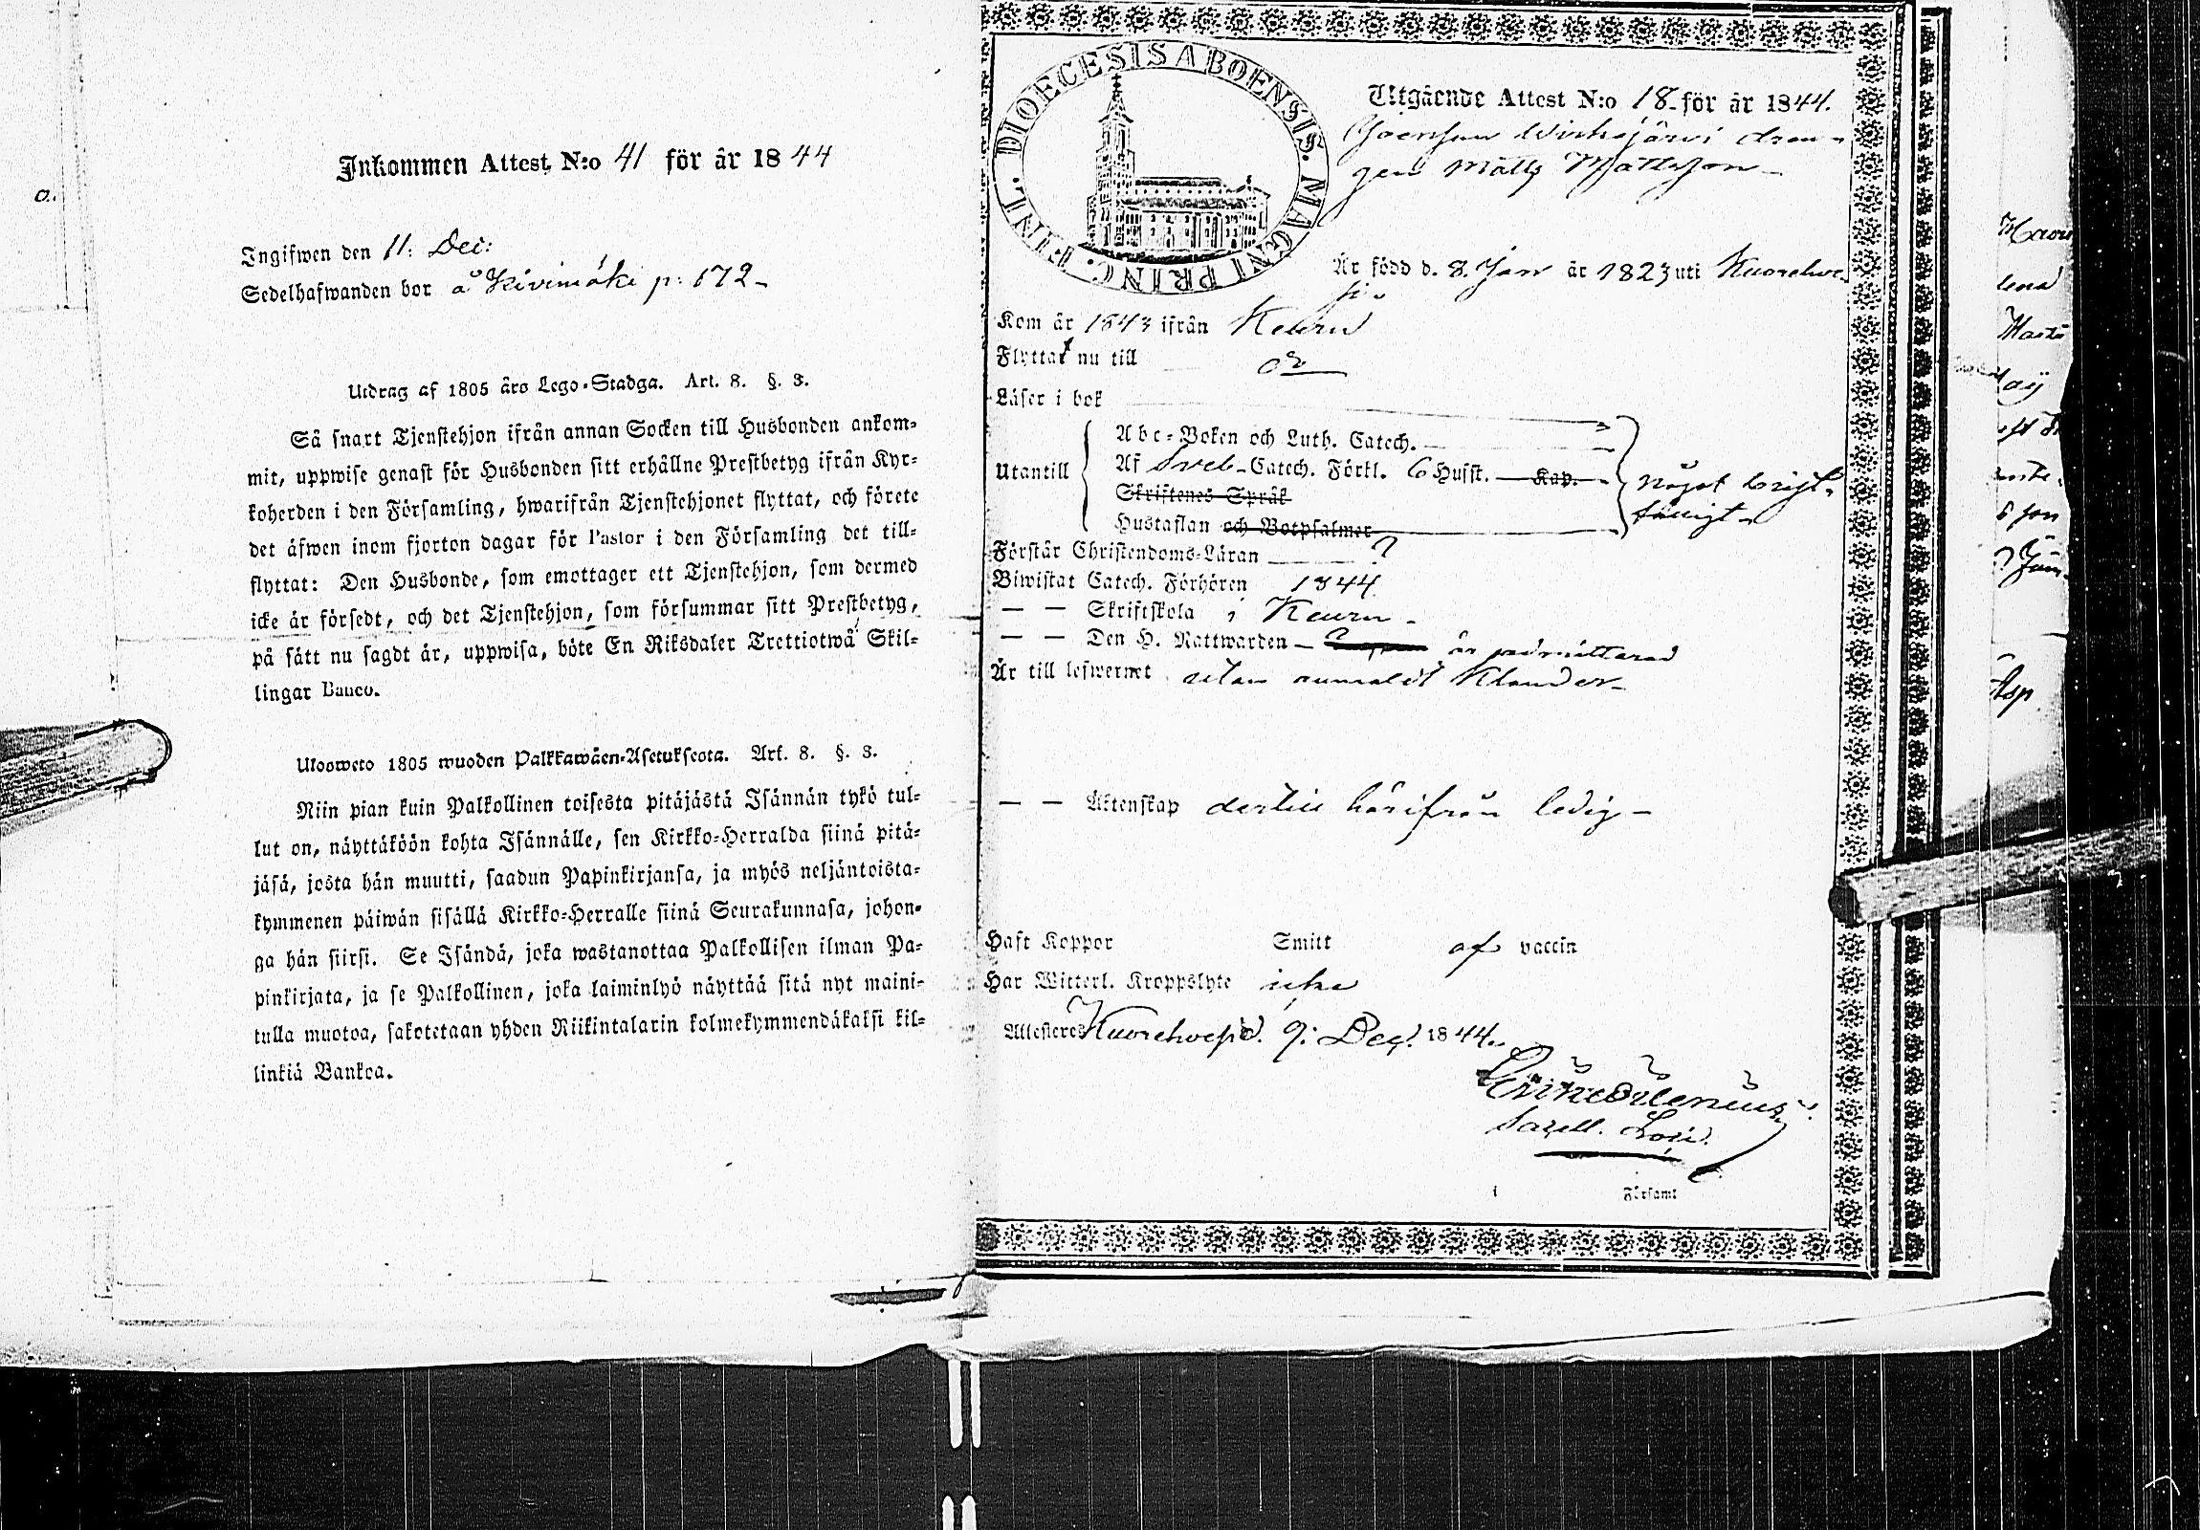 Inkommen Attest N:o 41 för år 1844
Ingifwen den 11. Dec:
Sedelhafwanden bor å Kivimäki p: 172
Utdrag af 1805 års Lego-Stadga. Art. 8. §. 3.
Så snart Tjenstehjon ifrån annan Socken till Husbonden ankom-
mit, uppwise genast för Husbonden sitt erhållne Prestbetyg ifrån Kyr-
koherden i den Församling, hwarifrån Tjenstehjonet flyttat, och förete
det äfwen inom fjorton dagar för Pastor i den Församling det till-
flyttat: Den Husbonde, som emottager ett Tjenstehjon, som dermed
icke är försedt, och det Tjenstehjon, som försummar sitt Prestbetyg,
på sätt nu sagdt är, uppwisa, böte En Riksdaler Trettiotwå Skil-
lingar Banco.
Ulosweto 1805 wuoden Palkkawäen-Asetuksesta. Art. 8. §. 3.
Niin pian kuin Palkollinen toisesta pitäjästä Isännän tykö tul-
lut on, näyttäköön kohta Isännälle, sen Kirkko-Herralda siinä pitä-
jäsä, josta hän muutti, saadun Papinkirjansa, ja myös neljäntoista-
kymmenen päiwän sisällä Kirkko-Herralle siinä Seurakunnasa, johon-
ga hän siirsi. Se Isändä, joka wastanottaa Palkollisen ilman Pa-
pinkirjata, ja se Palkollinen, joka laiminlyö näyttää sitä nyt maini-
tulla muotoa, sakotetaan yhden Riikintalarin kolmekymmendäkaksi kil-
linkiä Bankoa.
DIOECESIS ABOENSIS. MAGNI PRINC. FINL.
Utgående Attest N:o 18 för år 1844.
drän-
gen Matts Mattsson
Är född d. 8. Jan är 1823 uti Kuorehwe-
si
Kom år 1843 ifrån Keuru
Flyttar nu till
Läser i bok
Abc-Boken och Luth. Catech.
Utantill
Af Sveb. Catech. Förkl. 6 Hufst. Kap.
Skriftenes Språk
Hustaflan och Botpsalmer
något
Förstår Christendoms-Läran
Biwistat Catech. Förhören 1844
— — Skriftskola i Keuru
— — Den H. Nattwarden är admitterad
Är till lefwernet utan anmäldt Klander
— — Äktenskap dertill härifrån ledig
Haft Koppor Smitt af vaccin
Har Witterl. Kroppslyte icke
Attesteres Kuorehvesi d. 9. Dec. 1844.
i Församl